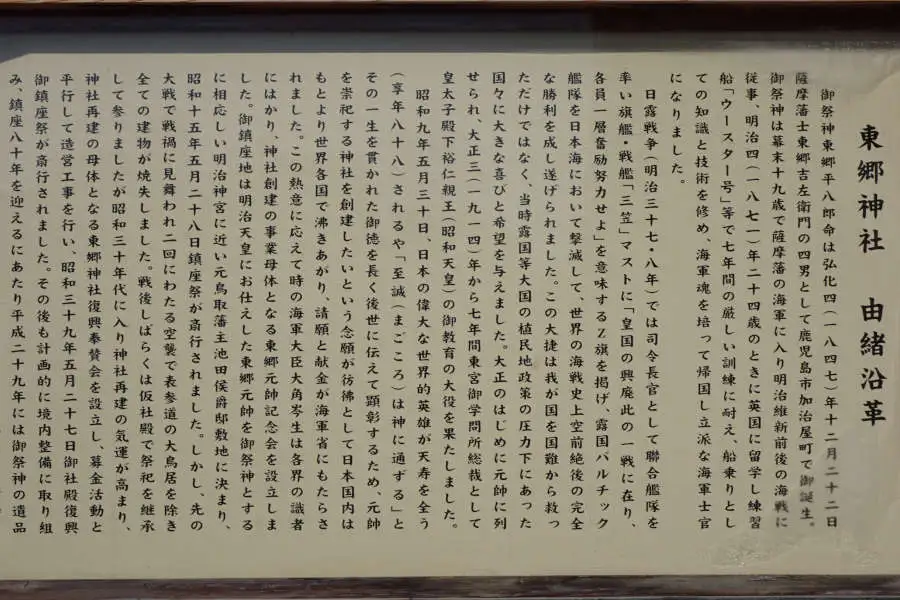 東郷神社 由緒沿革
御祭神東郷平八郎命は弘化四(一八四七)年十二月二十二日
薩摩藩士東郷吉左衛門の四男として鹿児島市加治屋町で御誕生。
御祭神は幕末十九歳で薩摩藩の海軍に入り明治維新前後の海戦に
従事、明治四(一八七一)年二十四歳のときに英国に留学し練習
船「ウースター号」等で七年間の厳しい訓練に耐え、船乗りとし
ての知識と技術を修め、海軍魂を培って帰国し立派な海軍士官
になりました。
日露戦争(明治三十七・八年)では司令長官として聯合艦隊を
率い旗艦・戦艦「三笠」マストに「皇国の興廃此の一戦に在り、
各員一層奮励努力せよ」を意味するZ旗を掲げ、露国バルチック
艦隊を日本海において撃滅して、世界の海戦史上空前絶後の完全
な勝利を成し遂げられました。この大捷は我が国を国難から救っ
ただけではなく、当時露国等大国の植民地政策の圧力下にあった
国々に大きな喜びと希望を与えました。大正のはじめに元帥に列
せられ、大正三(一九一四)年から七年間東宮御学問所総裁として
皇太子殿下裕仁親王(昭和天皇)の御教育の大役を果たしました。
昭和九年五月三十日、日本の偉大な世界的英雄が天寿を全う
(享年八十八)されるや「至誠(まごころ)は神に通ずる」と
その一生を貫かれた御徳を長く後世に伝えて顕彰するため、元帥
を崇祀する神社を創建したいという念願が彷彿として日本国内は
もとより世界各国で沸きあがり、請願と献金が海軍省にもたらさ
れました。この熱意に応えて時の海軍大臣大角岑生は各界の識者
にはかり、神社創建の事業母体となる東郷元帥記念会を設立しま
した。御鎮座地は明治天皇にお仕えした東郷元帥を御祭神とする
に相応しい明治神宮に近い元鳥取藩主池田侯爵邸敷地に決まり、
昭和十五年五月二十八日鎮座祭が斎行されました。しかし、先の
大戦で戦禍に見舞われ二回にわたる空襲で表参道の大鳥居を除き
全ての建物が焼失しました。戦後しばらくは仮社殿で祭祀を継承
して参りましたが昭和三十年代に入り神社再建の気運が高まり、
神社再建の母体となる東郷神社復興奉賛会を設立し、募金活動と
平行して造営工事を行い、昭和三十九年五月二十七日御社殿復興
御鎮座祭が斎行されました。その後も計画的に境内整備に取り組
み、鎮座八十年を迎えるにあたり平成二十九年には御祭神の遺品